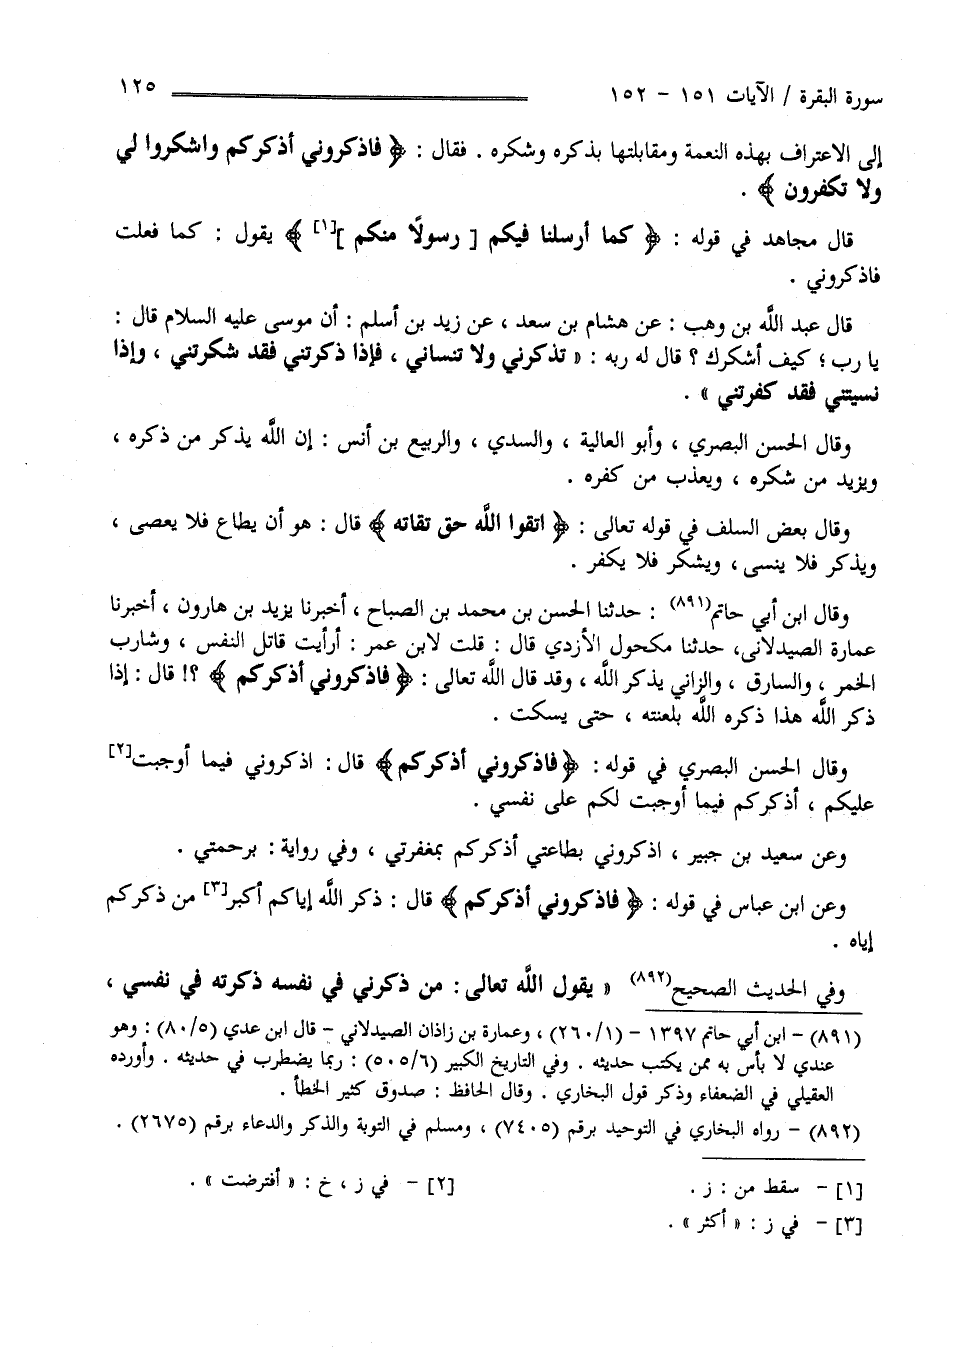 سورة البقرة / الآيات ١٥١ – ١٥٢ ١٢٥
إلى الاعتراف بهذه النعمة ومقابلتها بذكره وشكره . فقال : ﴿ فاذكروني أذكركم واشكروا لي
ولا تكفرون ﴾ .
قال مجاهد في قوله : ﴿ كما أرسلنا فيكم [ رسولًا منكم ][١] ﴾ يقول : كما فعلت
فاذكروني .
قال عبد اللَّه بن وهب : عن هشام بن سعد ، عن زيد بن أسلم : أن موسى عليه السلام قال :
يا رب ؛ كيف أشكرك ؟ قال له ربه : « تذكرني ولا تنساني ، فإذا ذكرتني فقد شكرتني ، وإذا
نسيتني فقد كفرتني » .
وقال الحسن البصري ، وأبو العالية ، والسدي ، والربيع بن أنس : إن اللَّه يذكر من ذكره ،
ويزيد من شكره ، ويعذب من كفره .
وقال بعض السلف في قوله تعالى : ﴿ اتقوا اللَّه حق تقاته ﴾ قال : هو أن يطاع فلا يعصى ،
ويذكر فلا ينسى ، ويشكر فلا يكفر .
وقال ابن أبي حاتم(٨٩١) : حدثنا الحسن بن محمد بن الصباح ، أخبرنا يزيد بن هارون ، أخبرنا
عمارة الصيدلاني، حدثنا مكحول الأزدي قال : قلت لابن عمر : أرأيت قاتل النفس ، وشارب
الخمر ، والسارق ، والزاني يذكر اللَّه ، وقد قال اللَّه تعالى : ﴿ فاذكروني أذكركم ﴾ ؟! قال : إذا
ذكر اللَّه هذا ذكره اللَّه بلعنته ، حتى يسكت .
وقال الحسن البصري في قوله : ﴿ فاذكروني أذكركم ﴾ قال : اذكروني فيما أوجبت[٢]
عليكم ، أذكركم فيما أوجبت لكم على نفسي .
وعن سعيد بن جبير ، اذكروني بطاعتي أذكركم بمغفرتي ، وفي رواية : برحمتي .
وعن ابن عباس في قوله : ﴿ فاذكروني أذكركم ﴾ قال : ذكر اللَّه إياكم أكبر[٣] من ذكركم
إياه .
وفي الحديث الصحيح(٨٩٢) « يقول اللَّه تعالى : من ذكرني في نفسه ذكرته في نفسي ،
(٨٩١) – ابن أبي حاتم ١٣٩٧ – (٢٦٠/١) ، وعمارة بن زاذان الصيدلاني – قال ابن عدي (٨٠/٥) : وهو
عندي لا بأس به ممن يكتب حديثه . وفي التاريخ الكبير (٥٠٥/٦) : ربما يضطرب في حديثه . وأورده
العقيلي في الضعفاء وذكر قول البخاري . وقال الحافظ : صدوق كثير الخطأ .
(٨٩٢) – رواه البخاري في التوحيد برقم (٧٤٠٥) ، ومسلم في التوبة والذكر والدعاء برقم (٢٦٧٥) .
[١] – سقط من : ز . [٢] – في ز ، خ : « أفترضت » .
[٣] – في ز : « أكثر » .